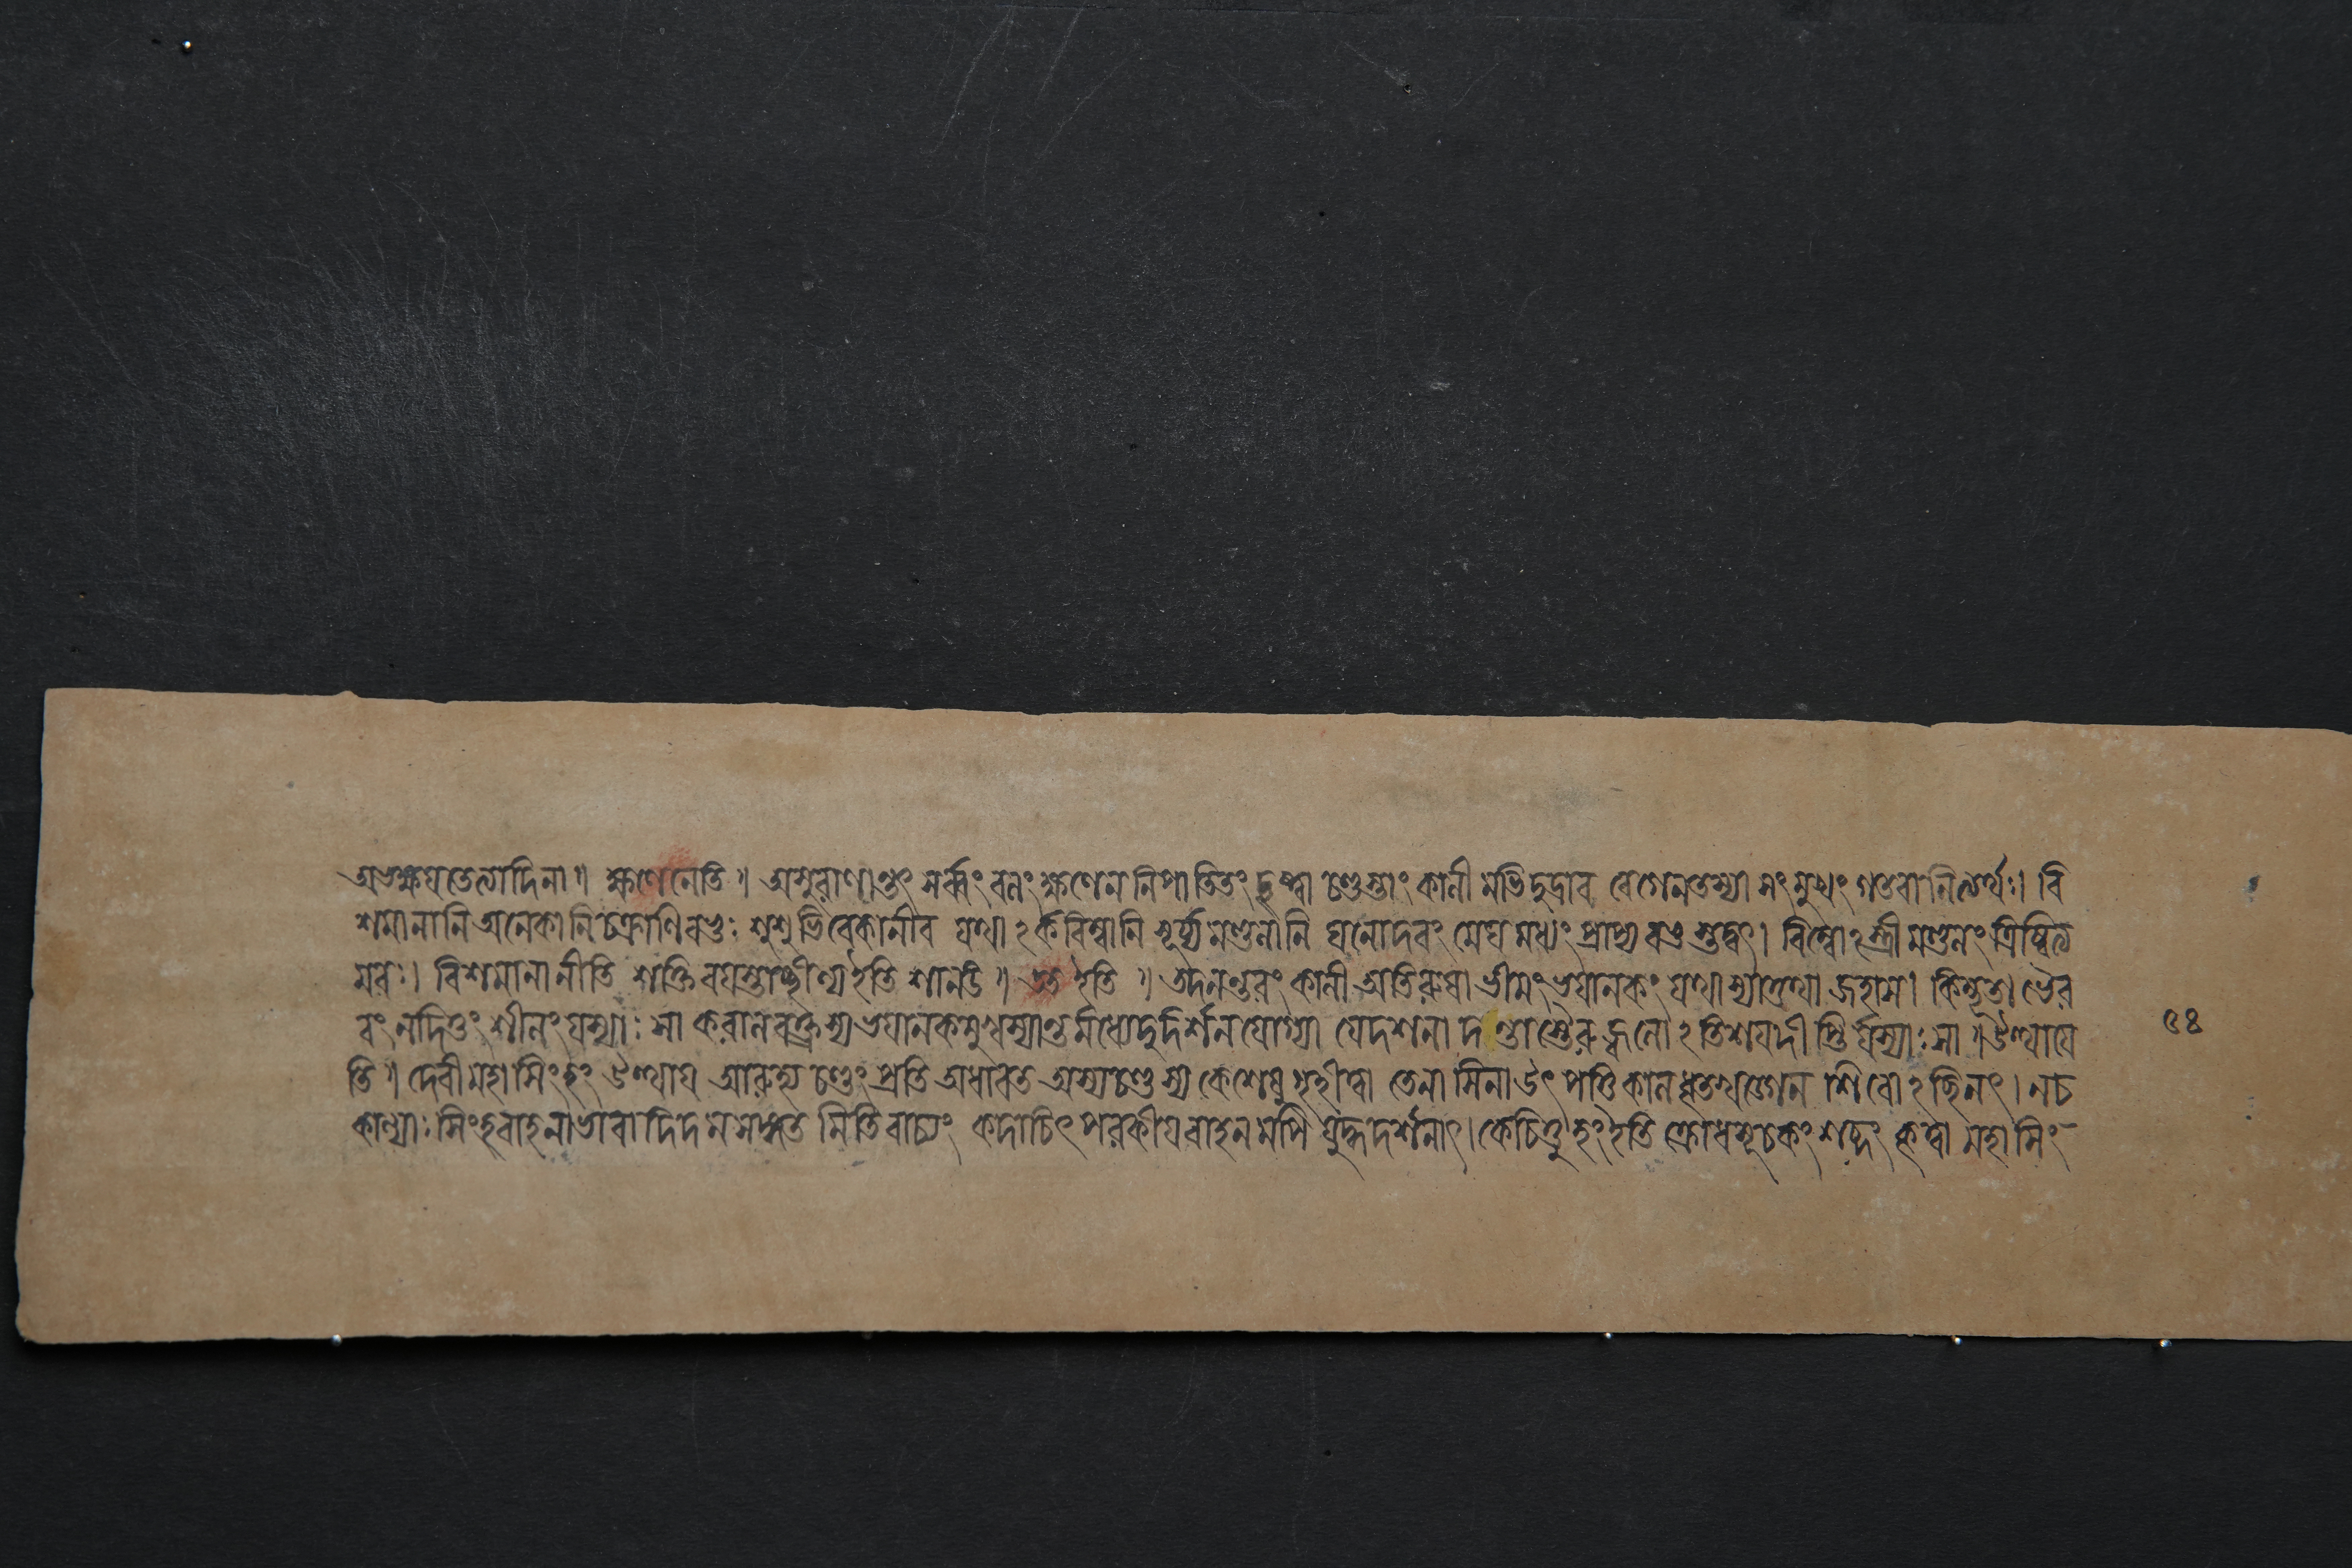 অভক্ষয়তেত্যাদিনা॥ ক্ষণেনেতি॥ অসুরাণান্তং সর্ব্বং বলং ক্ষণেন নিপাতিতং দৃষ্ট্বা চণ্ডস্তাং কালী মভিদুদ্রাব বেগেন তস্যা সংমুখং গতবানিত্যর্থঃ। বি
শমানানি অনেকানি চক্রাণি বভুঃ শুশুভিরে কানীব যথা ঽর্কবিম্বানি সূর্য্যমণ্ডলানি ঘনোদরং মেঘমধ্যং প্রাপ্য বভুস্তদ্বৎ। বিম্বোঽস্ত্রী মণ্ডলং ত্রিষ্বিত্য
মরঃ। বিশমানানীতি শক্তিবয়স্তাচ্ছীল্য ইতি শানচ্॥ তত ইতি॥ তদনন্তরং কালী অতিরুষা ভীমং ভয়ানকং যথাস্যাত্তথা জহাস। কিম্ভূতা ভৈর
বং নদিতুং শীলং যস্যাঃ সা করালবক্ত্রস্য ভয়ানকমুখস্যান্তর্মধ্যে দুর্দর্শনযোগ্যা যে দশনা দন্তাস্তৈরুজ্জ্বলো ঽতিশয়দীপ্তির্যস্যাঃ সা॥ উত্থায়ে
৫৪
তি॥ দেবী মহাসিংহং উত্থায় আরুহ্য চণ্ডং প্রতি অধাবত অস্য চণ্ডস্য কেশেষু গৃহীত্বা তেনাসিনা উৎপত্তিকালধৃতখড্গেন শিরোঽছিনৎ। নচ
কাল্যাঃ সিংহবাহনাভাবাদিদমসঙ্গতমিতি বাচ্যং কদাচিৎ পরকীয়বাহনমপি যুদ্ধদর্শনাৎ। কেচিত্তু হং ইতি ক্রোধসূচকং শব্দং কৃত্বা মহাসিং